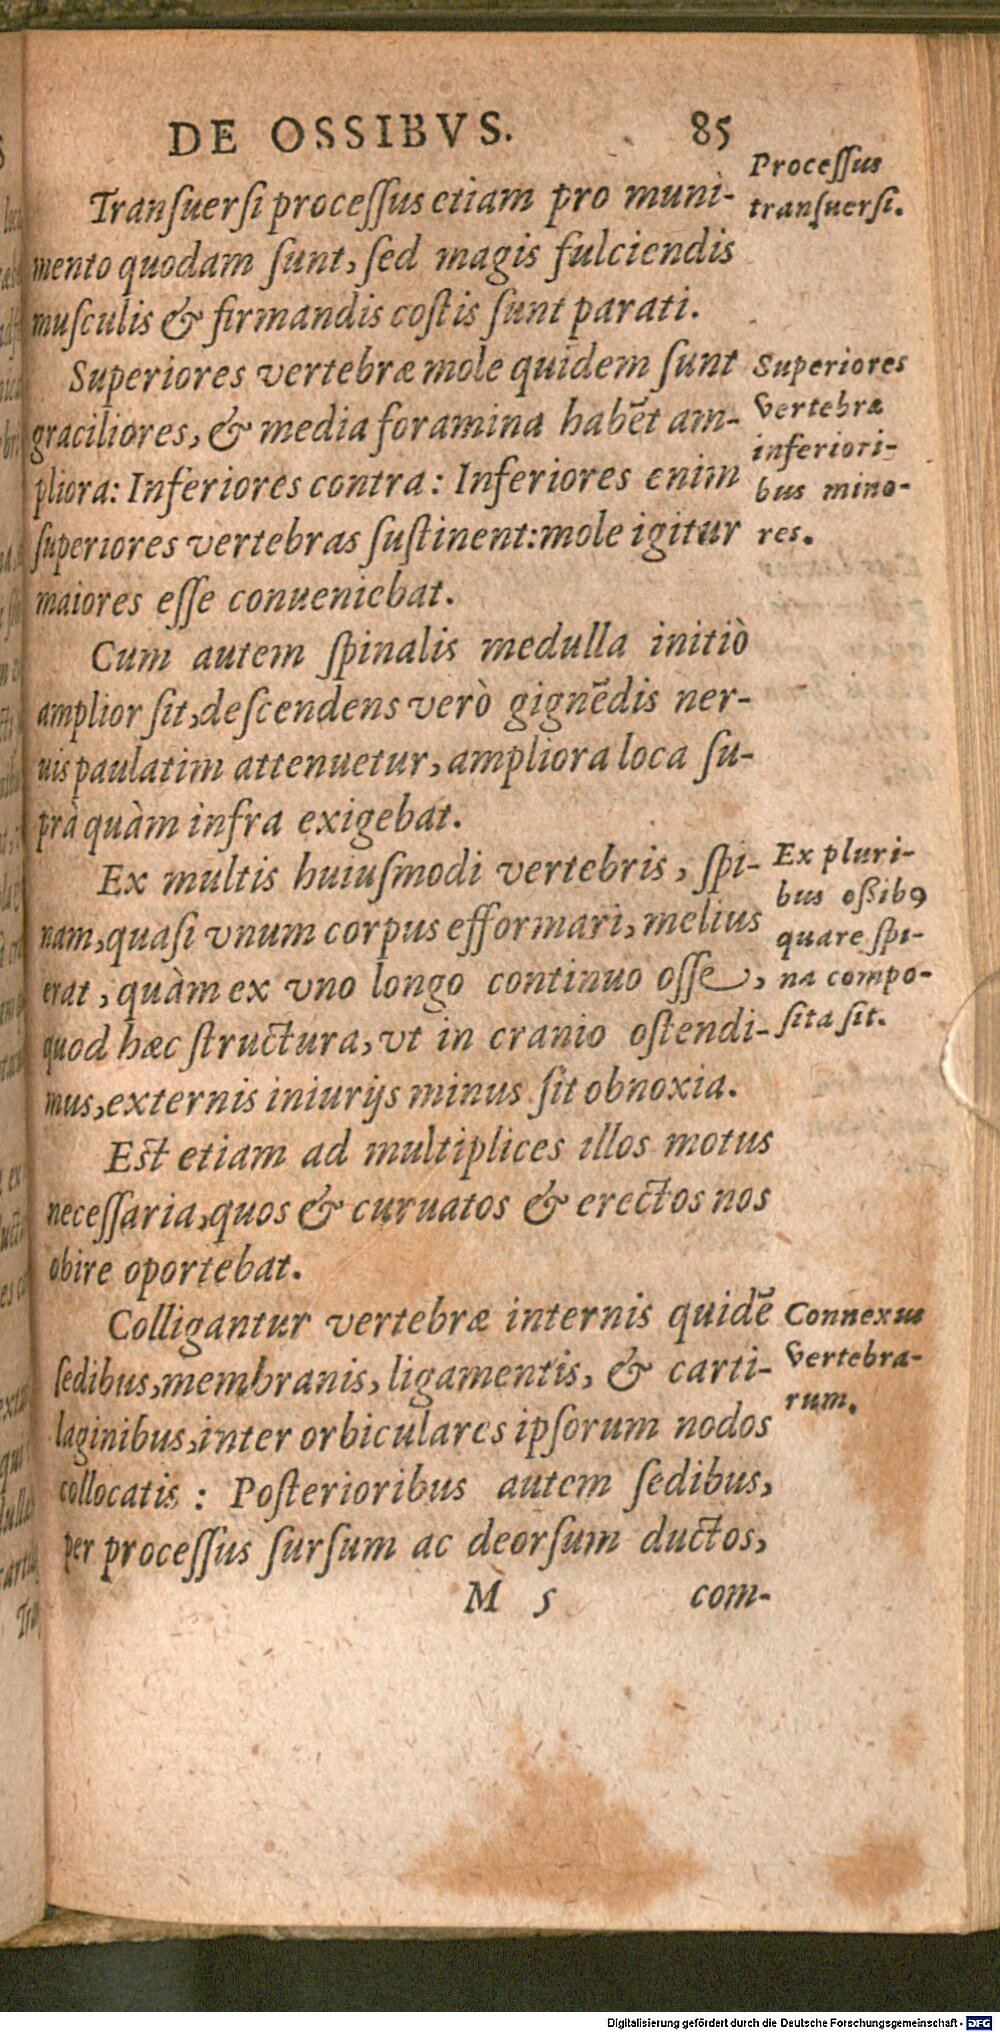 DE OSSIBVS. 85
Tranſuerſi proceſſus etiam pro muni-
mento quodam ſunt, ſed magis fulciendis
muſculis & firmandis coſtis ſunt parati.
Processus
tranſuerſi.
Superiores vertebræ mole quidem ſunt
graciliores, & media foramina habẽt am-
pliora: Inferiores contra: Inferiores enim
ſuperiores vertebras ſuſtinent: mole igitur
maiores eſſe conueniebat.
Superiores
vertebræ
inferiori-
bus mino-
res.
Cum autem ſpinalis medulla initiò
amplior ſit, deſcendens verò gignẽdis ner-
uis paulatim attenuetur, ampliora loca ſu-
prà quàm infra exigebat.
Ex multis huiuſmodi vertebris, ſpi-
nam, quaſi vnum corpus efformari, melius
erat, quàm ex vno longo continuo oſſe,
quod hæc ſtructura, vt in cranio oſtendi-
mus, externis iniurijs minus ſit obnoxia.
Ex pluri-
bus oßibꝰ
quare ſpi-
na compo-
ſita ſit.
Eſt etiam ad multiplices illos motus
neceſſaria, quos & curuatos & erectos nos
obire oportebat.
Colligantur vertebræ internis quidẽ
ſedibus, membranis, ligamentis, & carti-
laginibus, inter orbiculares ipſorum nodos
collocatis : Poſterioribus autem ſedibus,
per proceſſus ſurſum ac deorſum ductos,
Connexus
vertebra-
rum.
M 5 com-
Digitalisierung gefördert durch die Deutsche Forschungsgemeinschaft - DFG